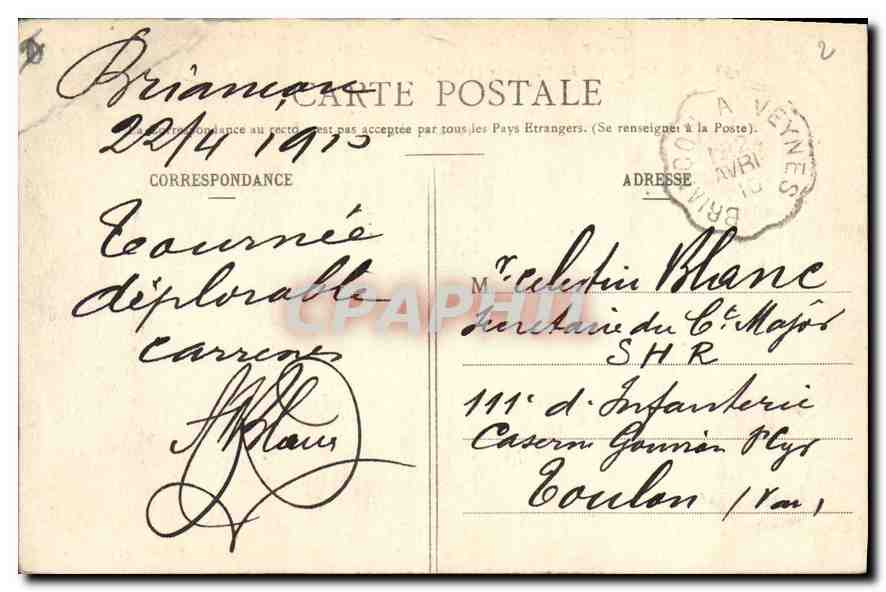 2
Briançon
CARTE POSTALE
La Correspondance au recto n'est pas acceptée par tous les Pays Etrangers. (Se renseigner à la Poste).
22/4 1910
BRIANÇON A VEYNES
AVRIL
10
CORRESPONDANCE
ADRESSE
Tournée
déplorable
CPAPHIL
A Blanc
Mr. Celestin Blanc
Secretaire du Ct. Major
S H R
111e d'Infanterie
Caserne Gouvion St Cyr
Toulon (Var)